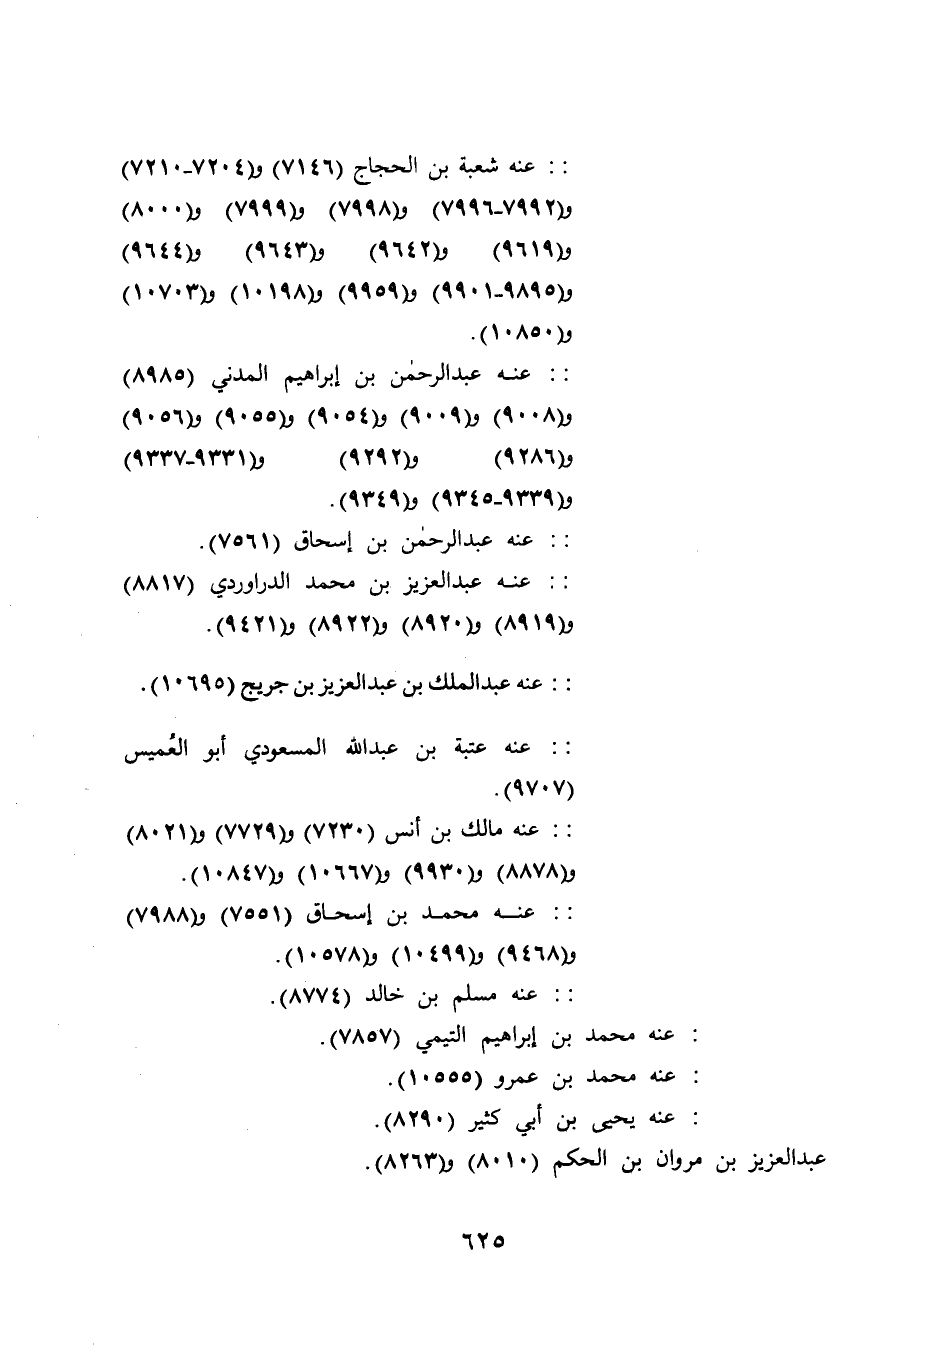 : : عنه شعبة بن الحجاج (٧١٤٦) و(٧٢٠٤-٧٢١٠)
و(٧٩٩٢-٧٩٩٦) و(٧٩٩٨) و(٧٩٩٩) و(٨٠٠٠)
و(٩٦١٩) و(٩٦٤٢) و(٩٦٤٣) و(٩٦٤٤)
و(٩٨٩٥-٩٩٠١) و(٩٩٥٩) و(١٠١٩٨) و(١٠٧٠٣)
و(١٠٨٥٠).
: : عنه عبدالرحمٰن بن إبراهيم المدني (٨٩٨٥)
و(٩٠٠٨) و(٩٠٠٩) و(٩٠٥٤) و(٩٠٥٥) و(٩٠٥٦)
و(٩٢٨٦) و(٩٢٩٢) و(٩٣٣١-٩٣٣٧)
و(٩٣٣٩-٩٣٤٥) و(٩٣٤٩).
: : عنه عبدالرحمٰن بن إسحاق (٧٥٦١).
: : عنه عبدالعزيز بن محمد الدراوردي (٨٨١٧)
و(٨٩١٩) و(٨٩٢٠) و(٨٩٢٢) و(٩٤٢١).
: : عنه عبدالملك بن عبدالعزيز بن جريج (١٠٦٩٥).
: : عنه عتبة بن عبدالله المسعودي أبو العُميس
(٩٧٠٧).
: : عنه مالك بن أنس (٧٢٣٠) و(٧٧٢٩) و(٨٠٢١)
و(٨٨٧٨) و(٩٩٣٠) و(١٠٦٦٧) و(١٠٨٤٧).
: : عنه محمد بن إسحاق (٧٥٥١) و(٧٩٨٨)
و(٩٤٦٨) و(١٠٤٩٩) و(١٠٥٧٨).
: : عنه مسلم بن خالد (٨٧٧٤).
: عنه محمد بن إبراهيم التيمي (٧٨٥٧).
: عنه محمد بن عمرو (١٠٥٥٥).
: عنه يحيى بن أبي كثير (٨٢٩٠).
عبدالعزيز بن مروان بن الحكم (٨٠١٠) و(٨٢٦٣).
٦٢٥